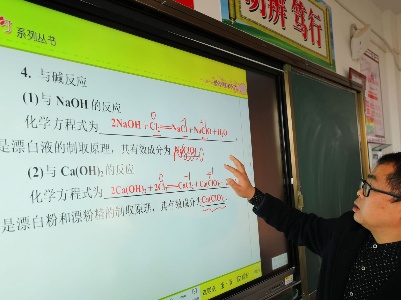 系列丛书
明辨 笃行
4. 与碱反应
(1)与 NaOH 的反应
0 -1 +1
化学方程式为 2NaOH+Cl₂══NaCl+NaClO+H₂O
是漂白液的制取原理，其有效成分为 NaClO。
(2)与 Ca(OH)₂的反应
0 -1 +1
化学方程式为 2Ca(OH)₂+2Cl₂══CaCl₂+Ca(ClO)₂
是漂白粉和漂粉精的制取原理，其有效成分为Ca(ClO)₂